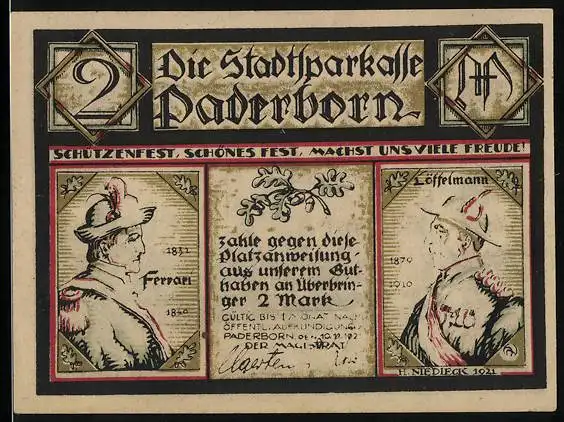 2
Die Stadtsparkasse
Paderborn
M
SCHÜTZENFEST, SCHÖNES FEST, MACHST UNS VIELE FREUDE!
1831
Ferrari
1840
zahle gegen diese
Platzanweisung
aus unserem Gut-
haben an Überbrin-
ger 2 Mark
GÜLTIG BIS 1 MONAT NACH
ÖFFENTL. AUFKÜNDIGUNG
PADERBORN, 10.11.1921
DER MAGISTRAT
Löffelmann
1879
1910
H. NIEDIECK 1921